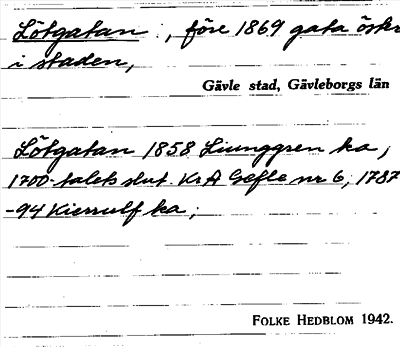 Lötgatan, före 1869 gata östr
i staden,
Gävle stad, Gävleborgs län
Lötgatan 1858 Ljunggren ka,
1700-talets slut. Kr A Gefle nr 6, 1787
-94 Kierrulf ka;
FOLKE HEDBLOM 1942.